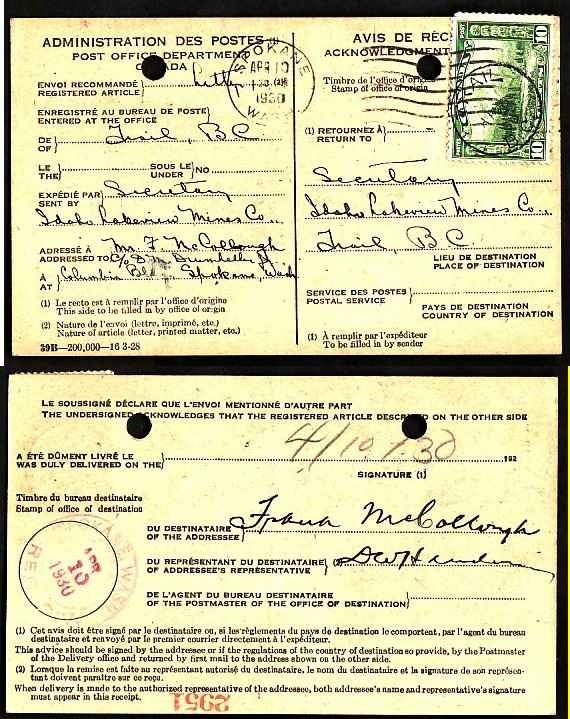 ADMINISTRATION DES POSTES
POST OFFICE DEPARTMENT
CANADA
ENVOI RECOMMANDÉ (2)
REGISTERED ARTICLE
Letter
ENREGISTRÉ AU BUREAU DE POSTE
ENTERED AT THE OFFICE
DE
OF
Trail, B C
LE
THE
SOUS LE
UNDER
NO
EXPÉDIÉ PAR
SENT BY
Secretary
Idaho Lakeview Mines Co.,
ADRESSÉ À
ADDRESSED TO
Mr. F. McCollough
C/o D.M. Drumheller Jr
À
AT
Columbia Bld. Spokane, Wash
(1) Le recto est à remplir par l'office d'origine
This side to be filled in by office of origin
(2) Nature de l'envoi (lettre, imprimé, etc.)
Nature of article (letter, printed matter, etc.)
39B—200,000—16 3-28
SPOKANE
APR 10
1930
WASH
AVIS DE RÉC
ACKNOWLEDGMENT
Timbre de l'office d'origine
Stamp of office of origin
10
10
(1) RETOURNEZ À
RETURN TO
Secretary
Idaho Lakeview Mines Co.,
Trail, B C
LIEU DE DESTINATION
PLACE OF DESTINATION
SERVICE DES POSTES
POSTAL SERVICE
PAYS DE DESTINATION
COUNTRY OF DESTINATION
(1) À remplir par l'expéditeur
To be filled in by sender
LE SOUSSIGNÉ DÉCLARE QUE L'ENVOI MENTIONNÉ D'AUTRE PART
THE UNDERSIGNED ACKNOWLEDGES THAT THE REGISTERED ARTICLE DESCRIBED ON THE OTHER SIDE
A ÉTÉ DÛMENT LIVRÉ LE
WAS DULY DELIVERED ON THE
4/10/30
192
SIGNATURE (1)
Timbre du bureau destinataire
Stamp of office of destination
APR
10
1930
DU DESTINATAIRE
OF THE ADDRESSEE
Frank McCollough
DU REPRÉSENTANT DU DESTINATAIRE
OF ADDRESSEE'S REPRESENTATIVE
(2)
DE L'AGENT DU BUREAU DESTINATAIRE
OF THE POSTMASTER OF THE OFFICE OF DESTINATION
(1) Cet avis doit être signé par le destinataire ou, si les règlements du pays de destination le comportent, par l'agent du bureau
destinataire et renvoyé par le premier courrier directement à l'expéditeur.
This advice should be signed by the addressee or if the regulations of the country of destination so provide, by the Postmaster
of the Delivery office and returned by first mail to the address shown on the other side.
(2) Lorsque la remise est faite au représentant autorisé du destinataire, le nom du destinataire et la signature de son représen-
tant doivent paraître sur ce reçu.
When delivery is made to the authorized representative of the addressee, both addressee's name and representative's signature
must appear in this receipt.
2951